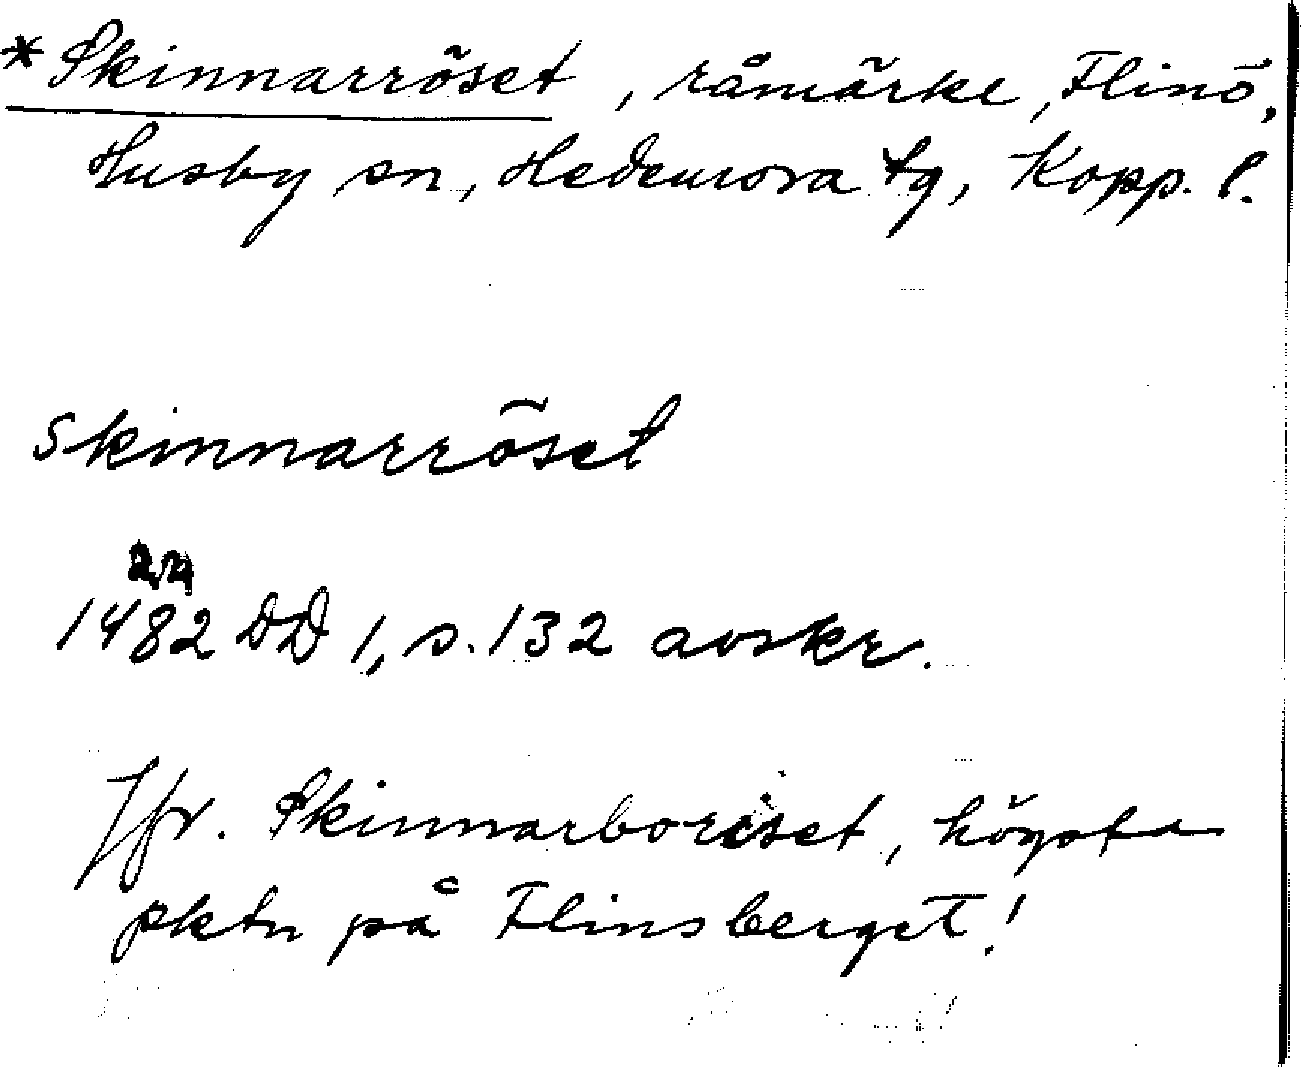 *Skinnarröset, råmärke, Flinö,
Husby sn, Hedemora tg, Kopp. l.
skinnarröset
1482 DD 1, s. 132 avskr.
Jfr. Skinnarboriset, högsta
pktn på Flinsberget!